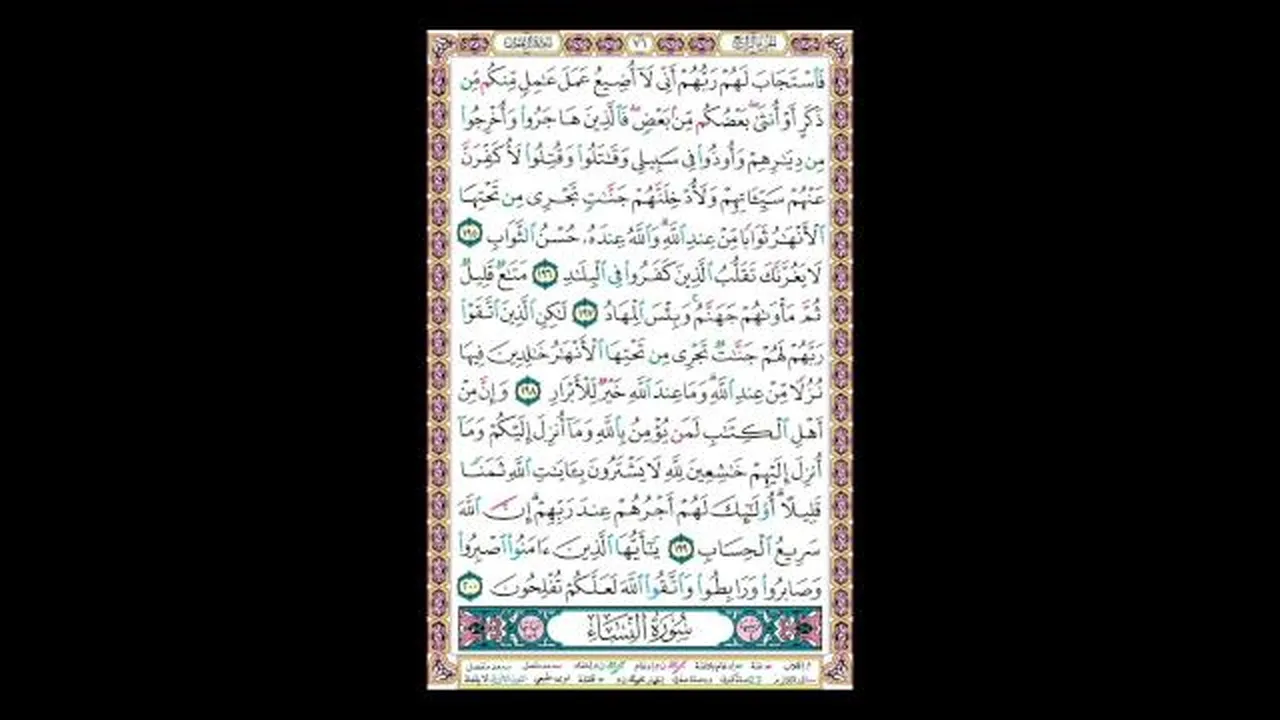 سورة آل عمران ٧٦ الجزء الرابع
فَٱسْتَجَابَ لَهُمْ رَبُّهُمْ أَنِّى لَآ أُضِيعُ عَمَلَ عَـٰمِلٍ مِّنكُم مِّن
ذَكَرٍ أَوْ أُنثَىٰ ۖ بَعْضُكُم مِّنۢ بَعْضٍ ۖ فَٱلَّذِينَ هَاجَرُوا۟ وَأُخْرِجُوا۟
مِن دِيَـٰرِهِمْ وَأُوذُوا۟ فِى سَبِيلِى وَقَـٰتَلُوا۟ وَقُتِلُوا۟ لَأُكَفِّرَنَّ
عَنْهُمْ سَيِّـَٔاتِهِمْ وَلَأُدْخِلَنَّهُمْ جَنَّـٰتٍ تَجْرِى مِن تَحْتِهَا
ٱلْأَنْهَـٰرُ ثَوَابًا مِّنْ عِندِ ٱللَّهِ ۗ وَٱللَّهُ عِندَهُۥ حُسْنُ ٱلثَّوَابِ ١٩٥
لَا يَغُرَّنَّكَ تَقَلُّبُ ٱلَّذِينَ كَفَرُوا۟ فِى ٱلْبِلَـٰدِ ١٩٦ مَتَـٰعٌ قَلِيلٌ
ثُمَّ مَأْوَىٰهُمْ جَهَنَّمُ ۚ وَبِئْسَ ٱلْمِهَادُ ١٩٧ لَـٰكِنِ ٱلَّذِينَ ٱتَّقَوْا۟
رَبَّهُمْ لَهُمْ جَنَّـٰتٌ تَجْرِى مِن تَحْتِهَا ٱلْأَنْهَـٰرُ خَـٰلِدِينَ فِيهَا
نُزُلًا مِّنْ عِندِ ٱللَّهِ ۗ وَمَا عِندَ ٱللَّهِ خَيْرٌ لِّلْأَبْرَارِ ١٩٨ وَإِنَّ مِنْ
أَهْلِ ٱلْكِتَـٰبِ لَمَن يُؤْمِنُ بِٱللَّهِ وَمَآ أُنزِلَ إِلَيْكُمْ وَمَآ
أُنزِلَ إِلَيْهِمْ خَـٰشِعِينَ لِلَّهِ لَا يَشْتَرُونَ بِـَٔايَـٰتِ ٱللَّهِ ثَمَنًا
قَلِيلًا ۗ أُو۟لَـٰٓئِكَ لَهُمْ أَجْرُهُمْ عِندَ رَبِّهِمْ ۗ إِنَّ ٱللَّهَ
سَرِيعُ ٱلْحِسَابِ ١٩٩ يَـٰٓأَيُّهَا ٱلَّذِينَ ءَامَنُوا۟ ٱصْبِرُوا۟
وَصَابِرُوا۟ وَرَابِطُوا۟ وَٱتَّقُوا۟ ٱللَّهَ لَعَلَّكُمْ تُفْلِحُونَ ٢٠٠
سُورَةُ النِّسَاءِ